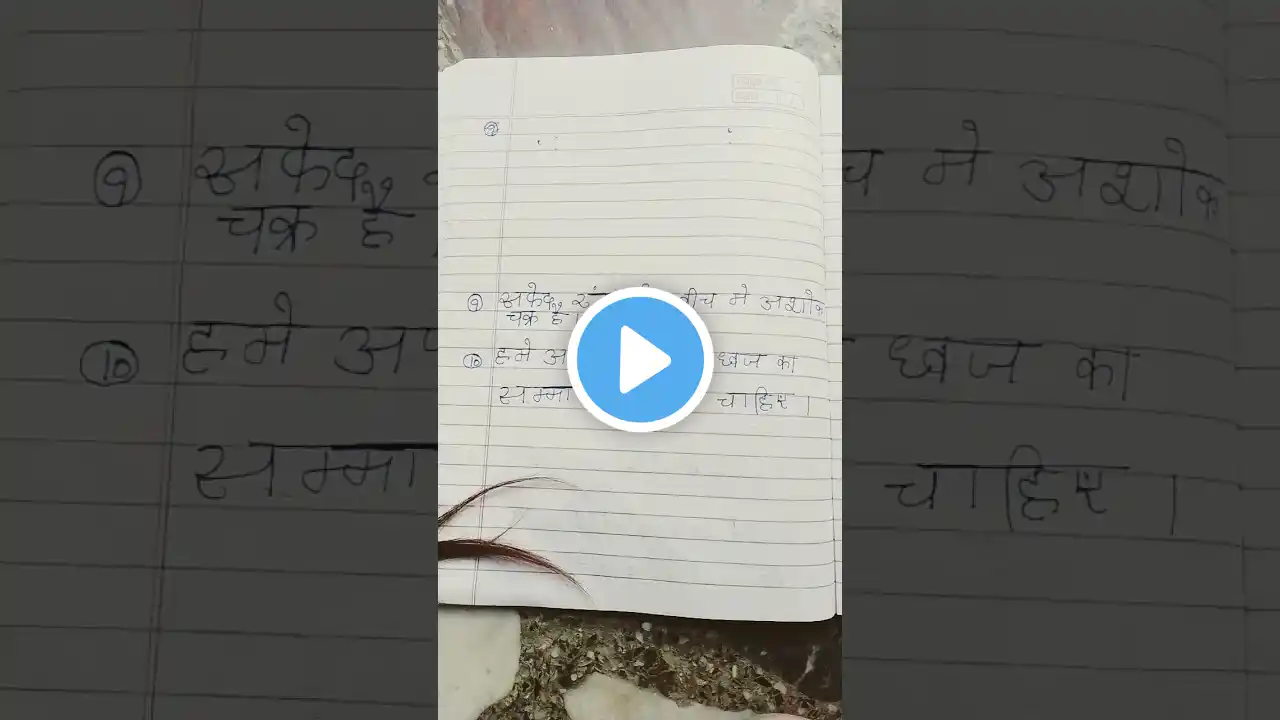 ⑨ सफेद रं बीच मे अशोक
चक्र है
⑩ हमे अ ध्वज का
सम्मा चाहिए ।